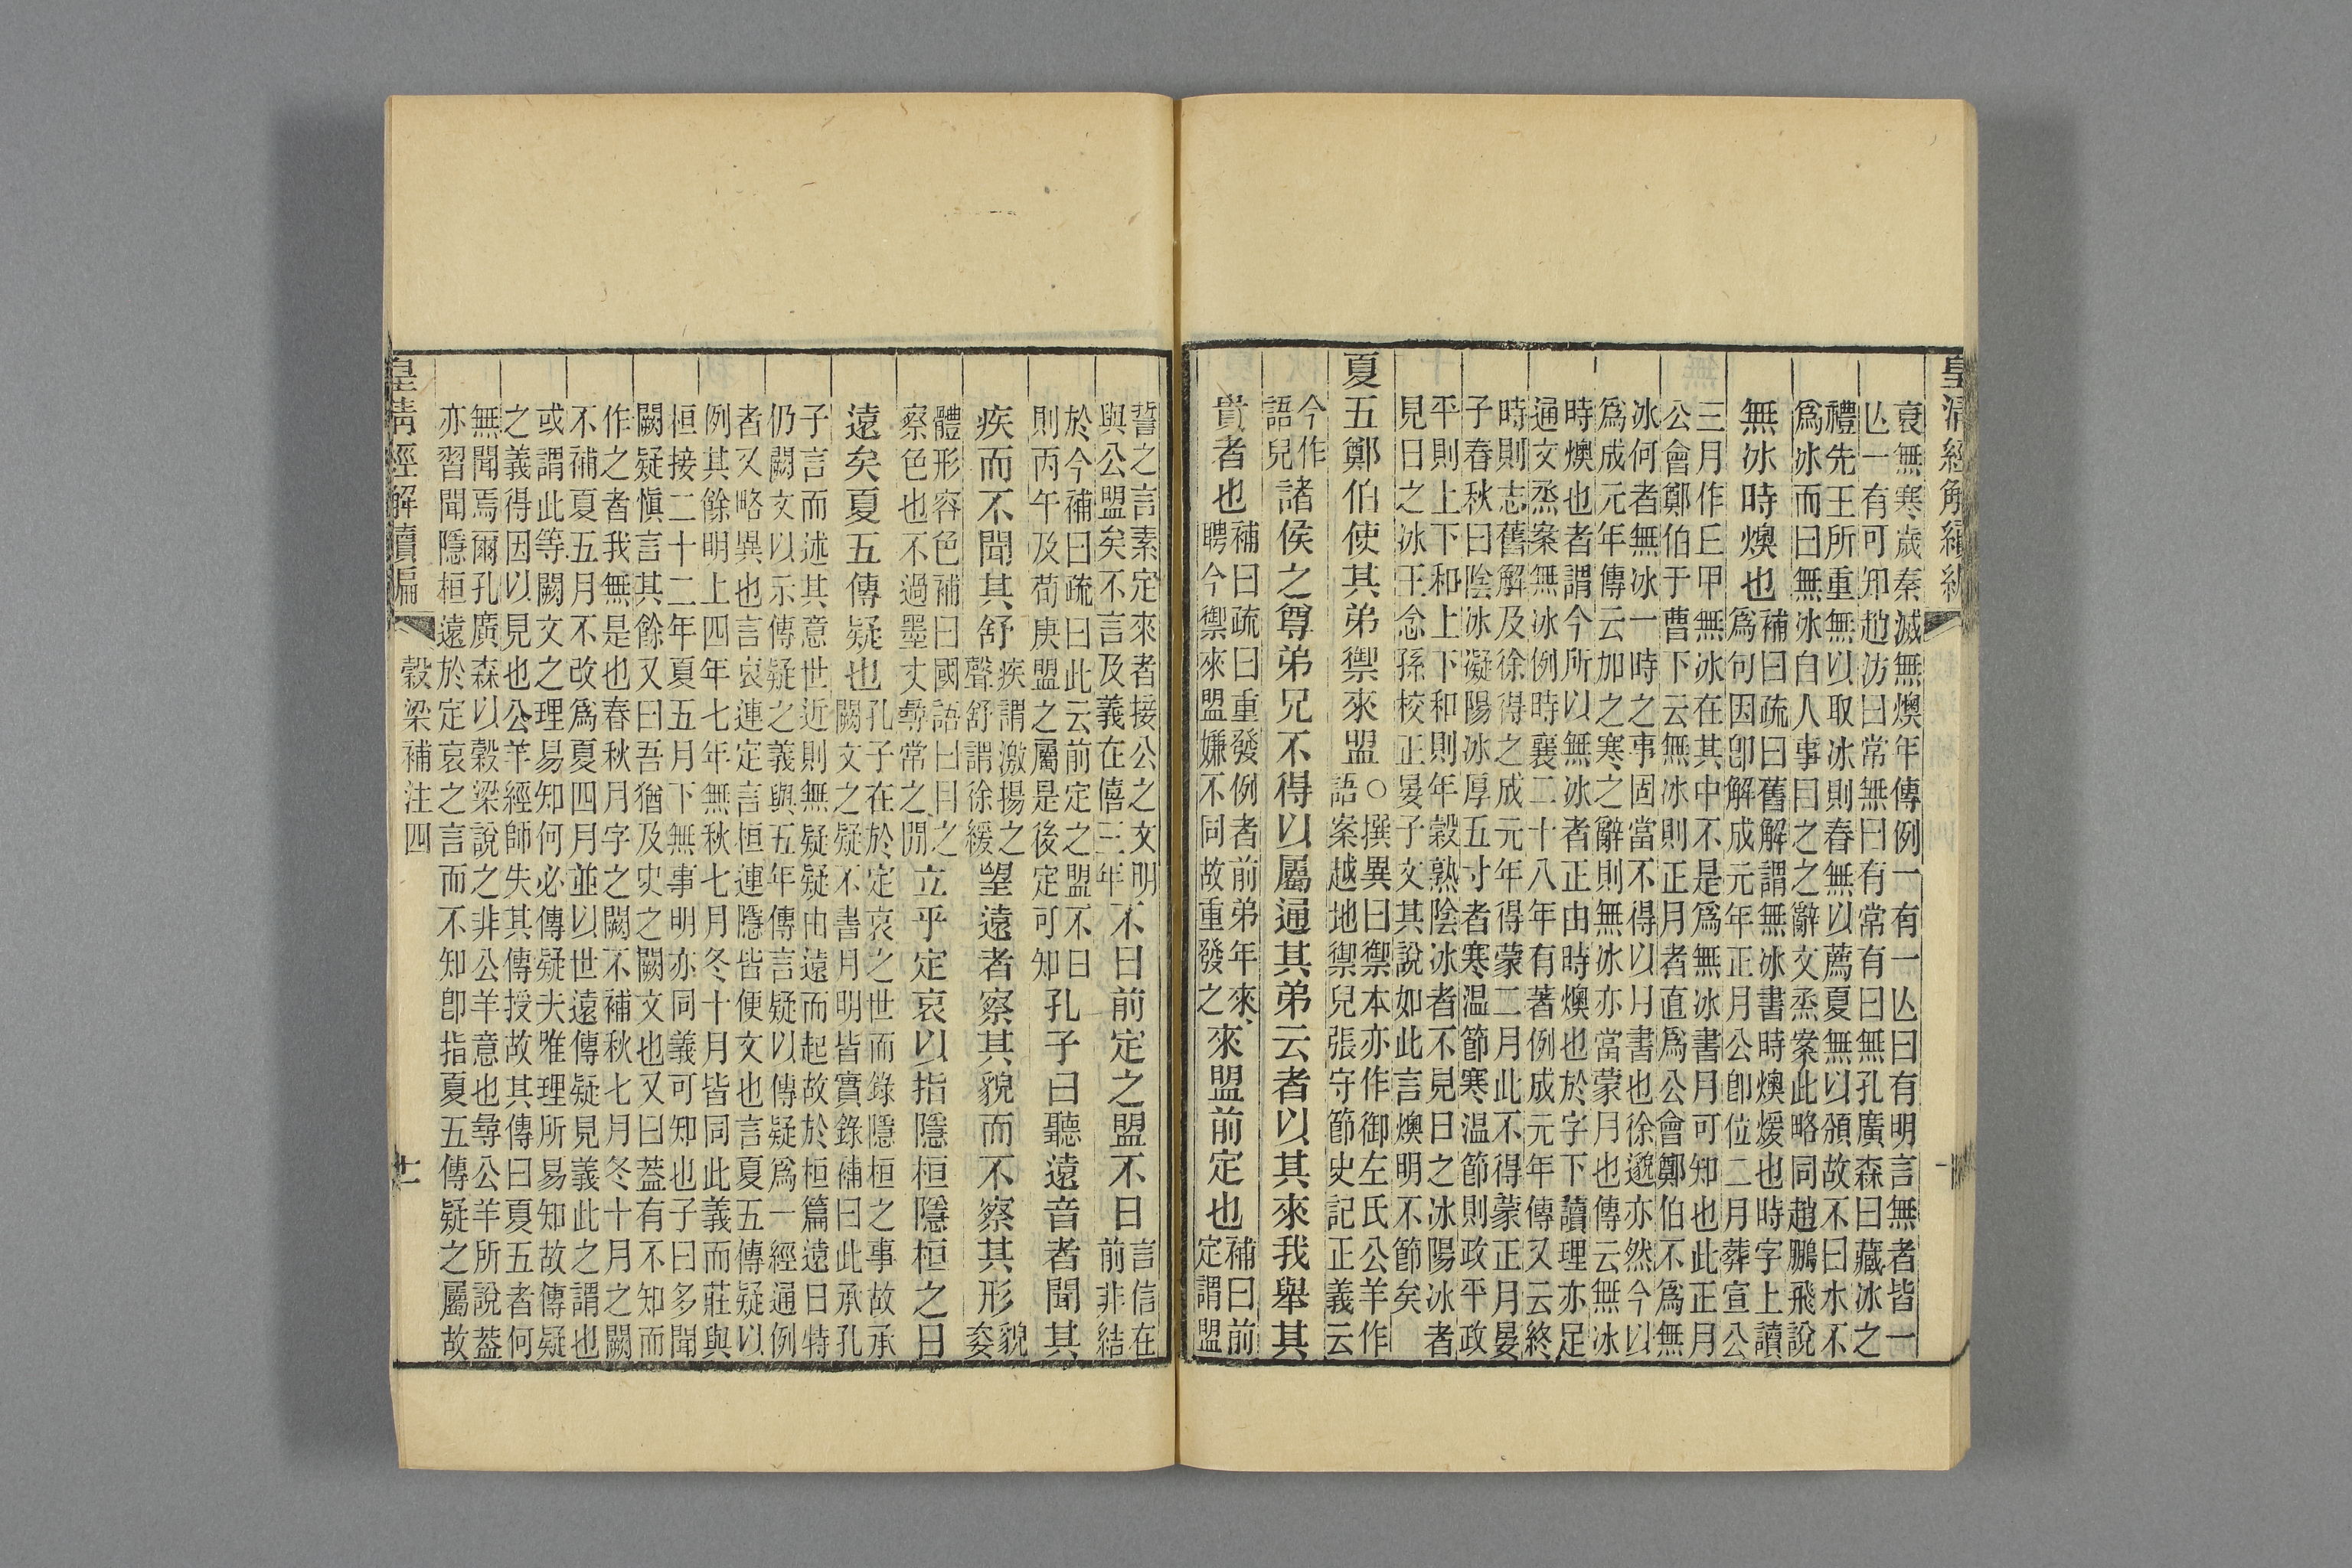 皇清經解續編
衰無寒歲秦滅無燠年傳例一有一亾曰有明言無者皆一
亾一有可知趙汸曰常無曰有常有曰無孔廣森曰藏冰之
禮先王所重無以取冰則春無以薦夏無以頒故不曰水不
爲冰而曰無冰自人事目之之辭文烝案此略同趙鵬飛說
無冰時燠也
補曰疏曰舊解謂無冰書時燠煖也時字上讀
爲句因卽解成元年正月公卽位二月葬宣公
三月作丘甲無冰在其中不是爲無冰書月可知也此正月
公會鄭伯于曹下云無冰則正月者直爲公會鄭伯不爲無
冰何者無冰一時之事固當不得以月書也徐邈亦然今以
爲成元年傳云加之寒之辭則無冰亦當蒙月也傳云無冰
時燠也者謂今所以無冰者正由時燠也於字下讀理亦足
通文烝案無冰例時襄二十八年有著例成元年傳又云終
時則志舊解及徐得之成元年得蒙二月此不得蒙正月晏
子春秋曰陰冰凝陽冰厚五寸者寒温節寒温節則政平政
平則上下和上下和則年穀熟陰冰者不見日之冰陽冰者
見日之冰王念孫校正晏子文其說如此言燠明不節矣
夏五鄭伯使其弟禦來盟
○撰異曰禦本亦作御左氏公羊作
語案越地禦兒張守節史記正義云
今作
語兒
諸侯之尊弟兄不得以屬通其弟云者以其來我舉其
貴者也
補曰疏曰重發例者前弟年來
聘今禦來盟嫌不同故重發之
來盟前定也
補曰前
定謂盟
誓之言素定來者接公之文明
與公盟矣不言及義在僖三年
不日前定之盟不日
言信在
前非結
於今補曰疏曰此云前定之盟不日
則丙午及荀庚盟之屬是後定可知
孔子曰聽遠音者聞其
疾而不聞其舒
疾謂激揚之
聲舒謂徐緩
望遠者察其貌而不察其形
貌
姿
體形容色補曰國語曰目之
察色也不過墨丈尋常之閒
立乎定哀以指隱桓隱桓之日
遠矣夏五傳疑也
孔子在於定哀之世而錄隱桓之事故承
闕文之疑不書月明皆實錄補曰此承孔
子言而述其意世近則無疑疑由遠而起故於桓篇遠日特
仍闕文以示傳疑之義與五年傳言疑以傳疑爲一經通例
者又略異也言哀連定言桓連隱皆便文也言夏五傳疑以
例其餘明上四年七年無秋七月冬十月皆同此義而莊與
桓接二十二年夏五月下無事明亦同義可知也子曰多聞
闕疑愼言其餘又曰吾猶及史之闕文也又曰葢有不知而
作之者我無是也春秋月字之闕不補秋七月冬十月之闕
不補夏五月不改爲夏四月並以世遠傳疑見義此之謂也
或謂此等闕文之理易知何必傳疑夫雅理所易知故傳疑
之義得因以見也公羊經師失其傳授故其傳曰夏五者何
無聞焉爾孔廣森以穀梁說之非公羊意也尋公羊所說葢
亦習聞隱桓遠於定哀之言而不知卽指夏五傳疑之屬故
皇清經解續編
穀梁補注四